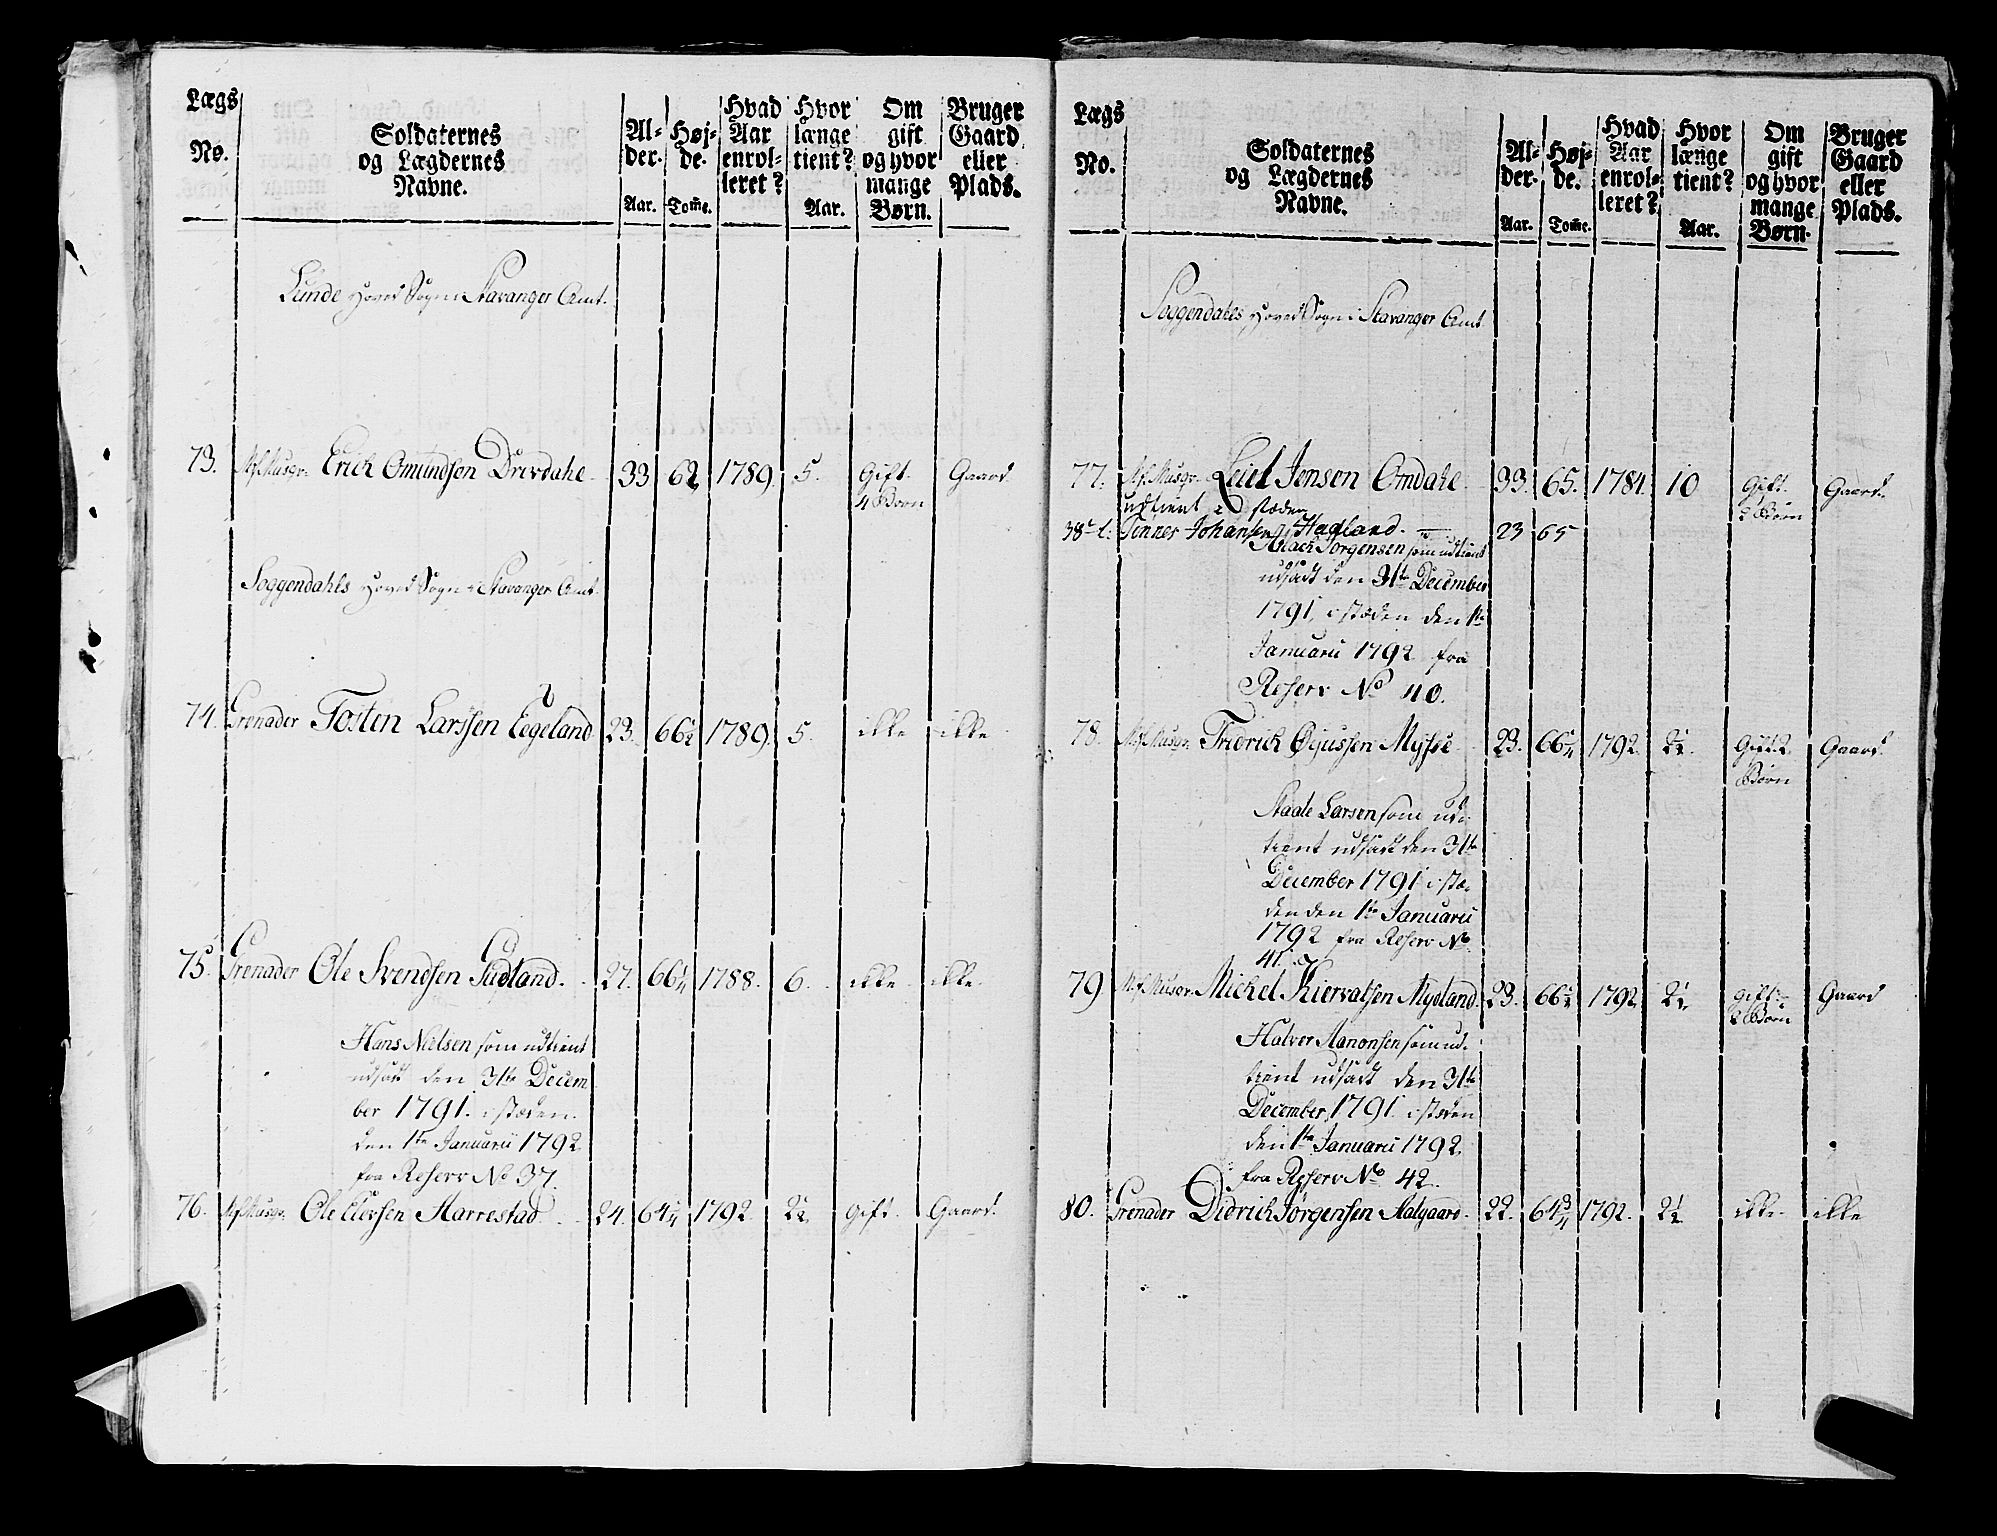 Lægs No.
Soldaternes og Lægdernes Navne.
Al-der. Aar.
Høj-de. Tom̄e.
Hvad Aar enrol-leret?
Hvor længe tient? Aar.
Om gift og hvor mange Børn.
Bruger Gaard eller Plads.
Lunde Hoved Sogn i Stavanger Amt.
73. Erich Omundsen Drivdahl 33 62 1789. 5. Gift. Gaard
4 Børn
Soggendahls Hoved Sogn i Stavanger Amt.
74. Grenader Tosten Larssen Eegeland 23. 66½ 1789. 5. ikke ikke
75. Grenader Ole Svendsen Sudland. 27. 66¼ 1788. 6. ikke ikke.
Hans Nielsen som udtient
udsadt den 31te Decem
ber 1791. i stæden
den 1te Januarii 1792
fra Reserv No 37.
76. Ole Harrestad 24. 64¼ 1792. 2½ Gift. Gaard.
Lægs No.
Soldaternes og Lægdernes Navne.
Al-der. Aar.
Høj-de. Tom̄e.
Hvad Aar enrol-leret?
Hvor længe tient? Aar.
Om gift og hvor mange Børn.
Bruger Gaard eller Plads.
Soggendahls Hoved Sogn i Stavanger Amt.
77. Leiel Jensen Omdahl 33. 65. 1784. 10 Gift. Gaard.
udtient i stæden 2 Børn
Tønnes Johansen Hagland. 23 65
Jørgensen som udtient
udsadt den 31te December
1791, i stæden den 1te
Januarii 1792 fra
Reserv No 40.
78. Fridrich Mysse 23. 66¼ 1792. 2½ Gift 2 Gaard.
Børn
Staale Larsen som ud-
tient udsadt den 31te
December 1791 i stæ-
den den 1te Januarii
1792 fra Reserv No
41.
79 Michel Kiervalsen Mydland 23. 66½ 1792 2½ gift Gaard
2 Børn
Halvor Aanonsen som ud-
tient udsadt den 31te
December 1791 i stæden
den 1te Januarii 1792
fra Reserv No 42.
80. Grenader Didrich Jørgensen Aalgaard. 22. 64¾ 1792. 2½ ikke ikke